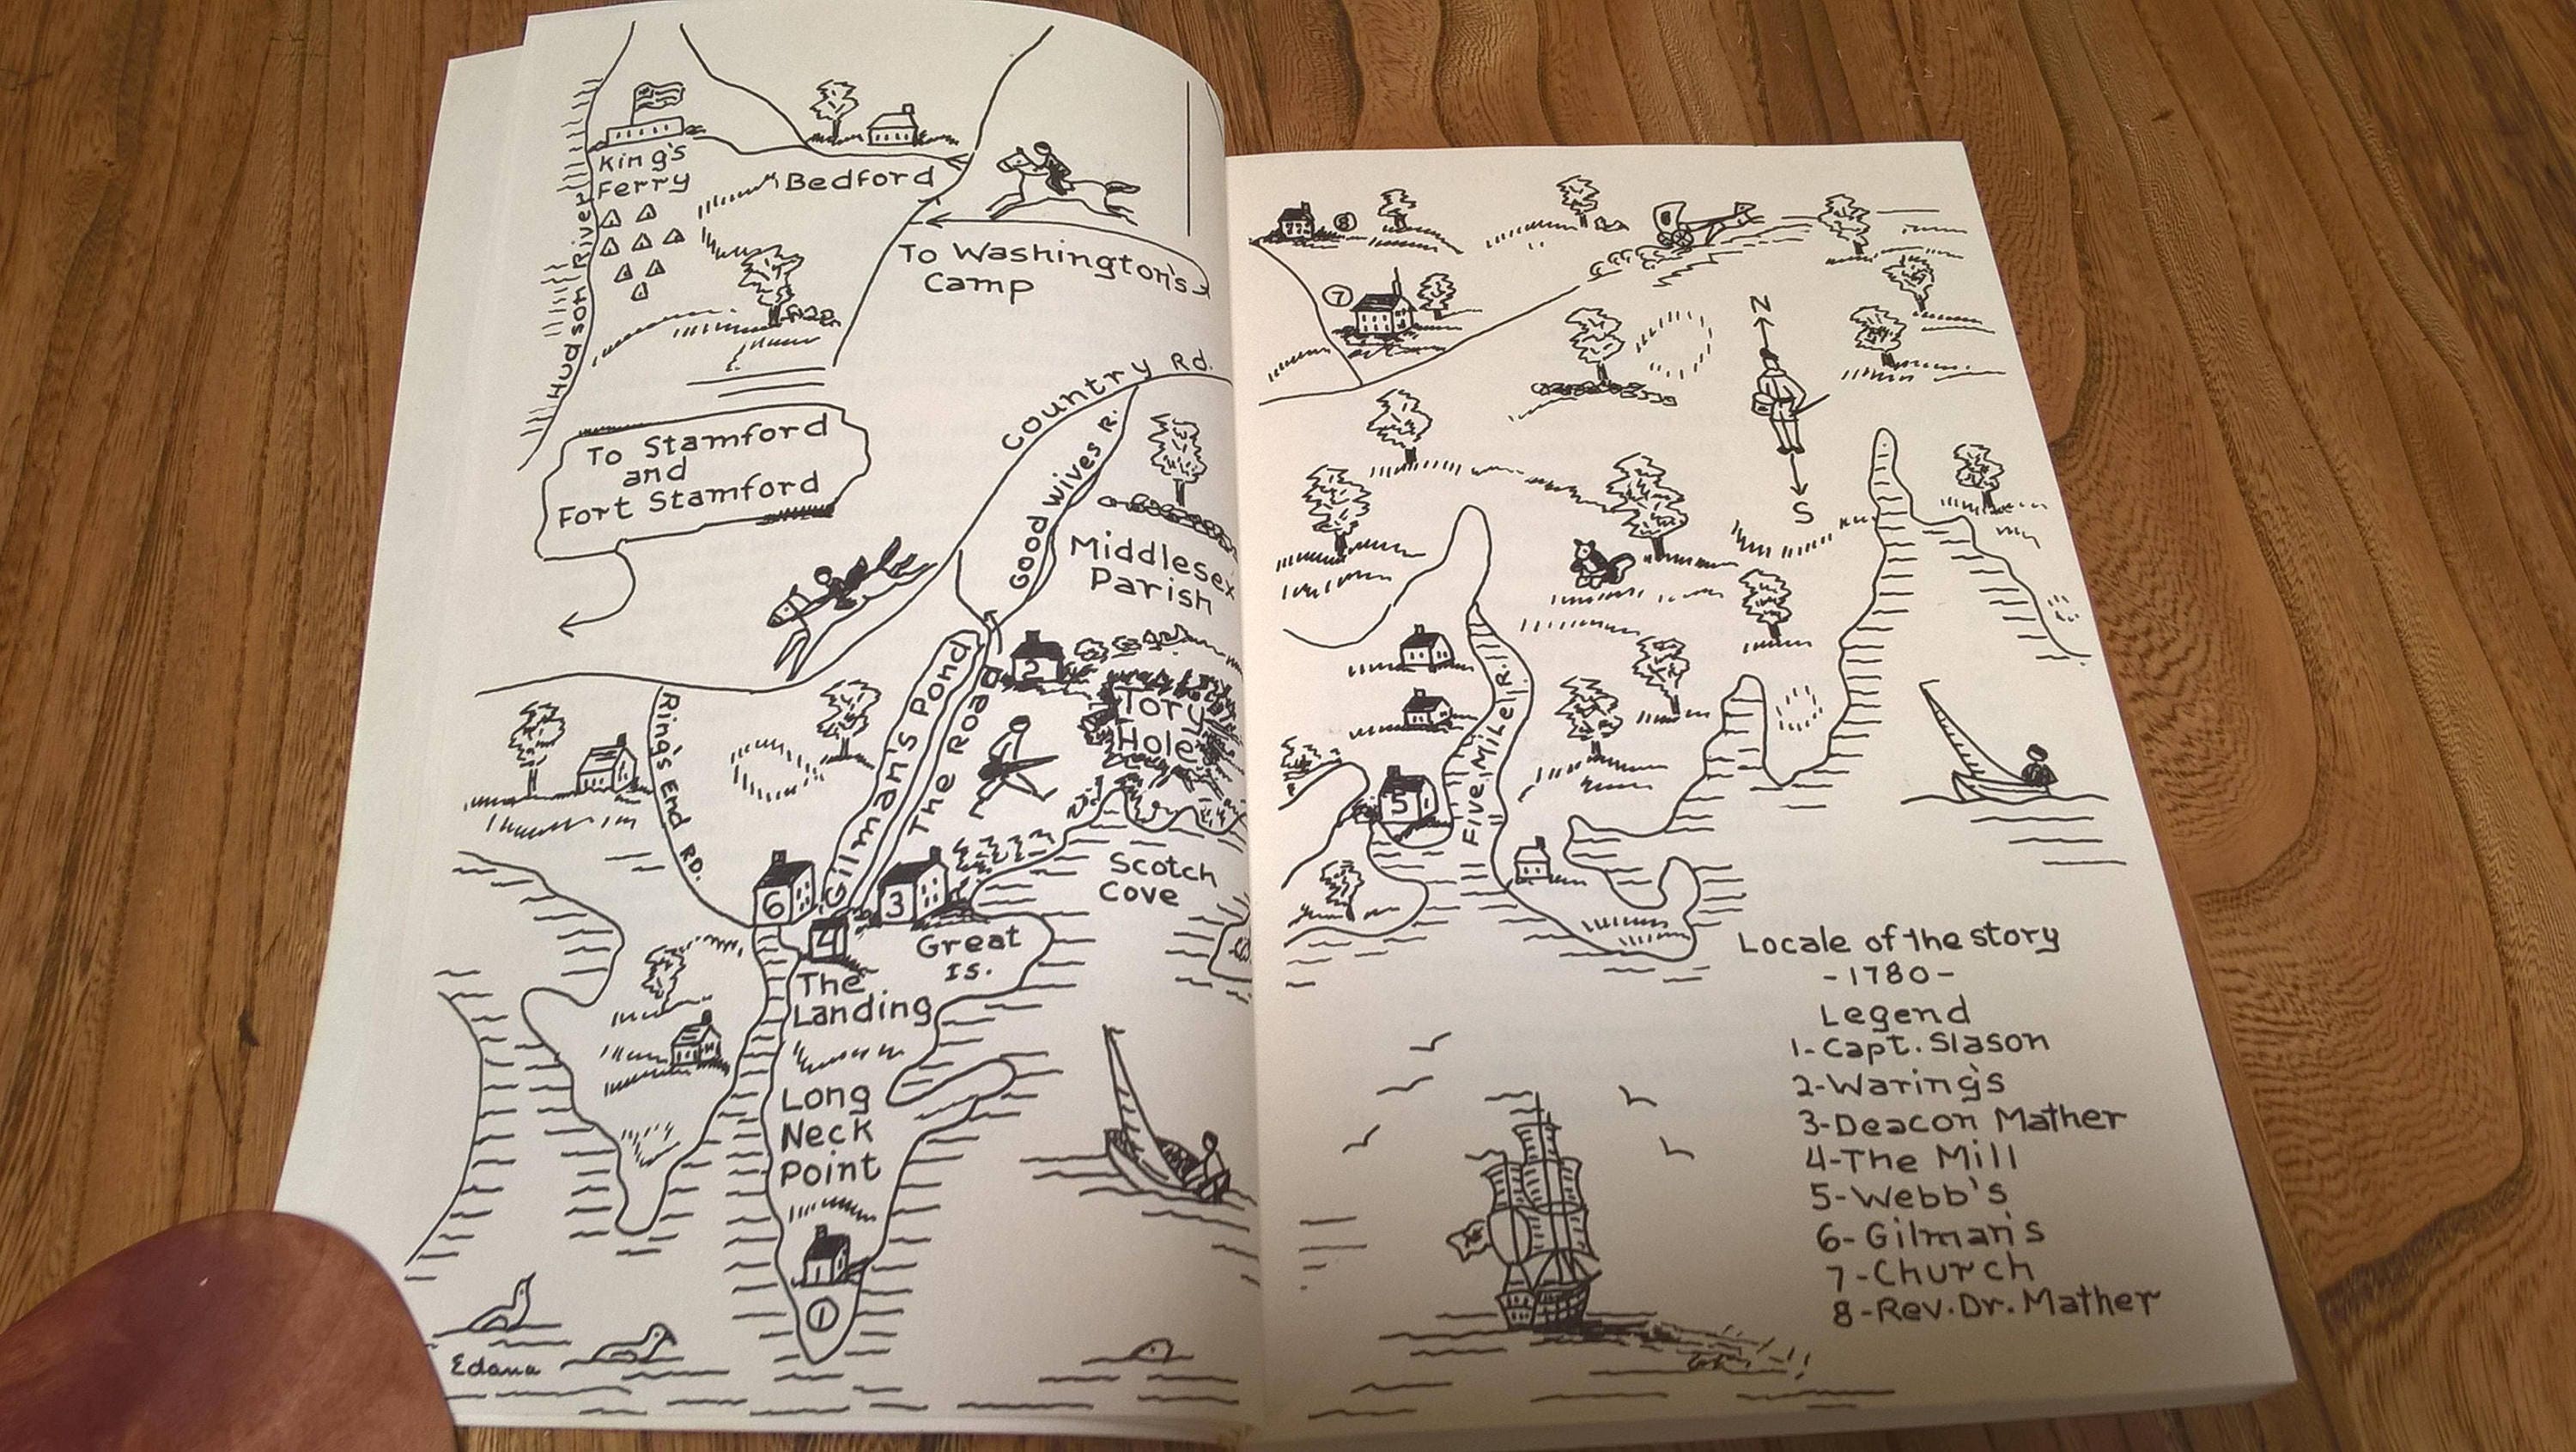 King's
Ferry
Hudson River
Bedford
To Washington's
Camp
To Stamford
and
Fort Stamford
Country Rd.
Good Wives R.
Middlesex
Parish
Ring's End RD.
Gilman's Pond
The Road
2
Tory
Hole
6
3
4
Scotch
Cove
Great
Is.
The
Landing
Long
Neck
Point
1
Edana
8
7
N
S
Five Mile R.
5
Locale of the story
-1780-
Legend
1-Capt. Slason
2-Waring's
3-Deacon Mather
4-The Mill
5-Webb's
6-Gilman's
7-Church
8-Rev. Dr. Mather